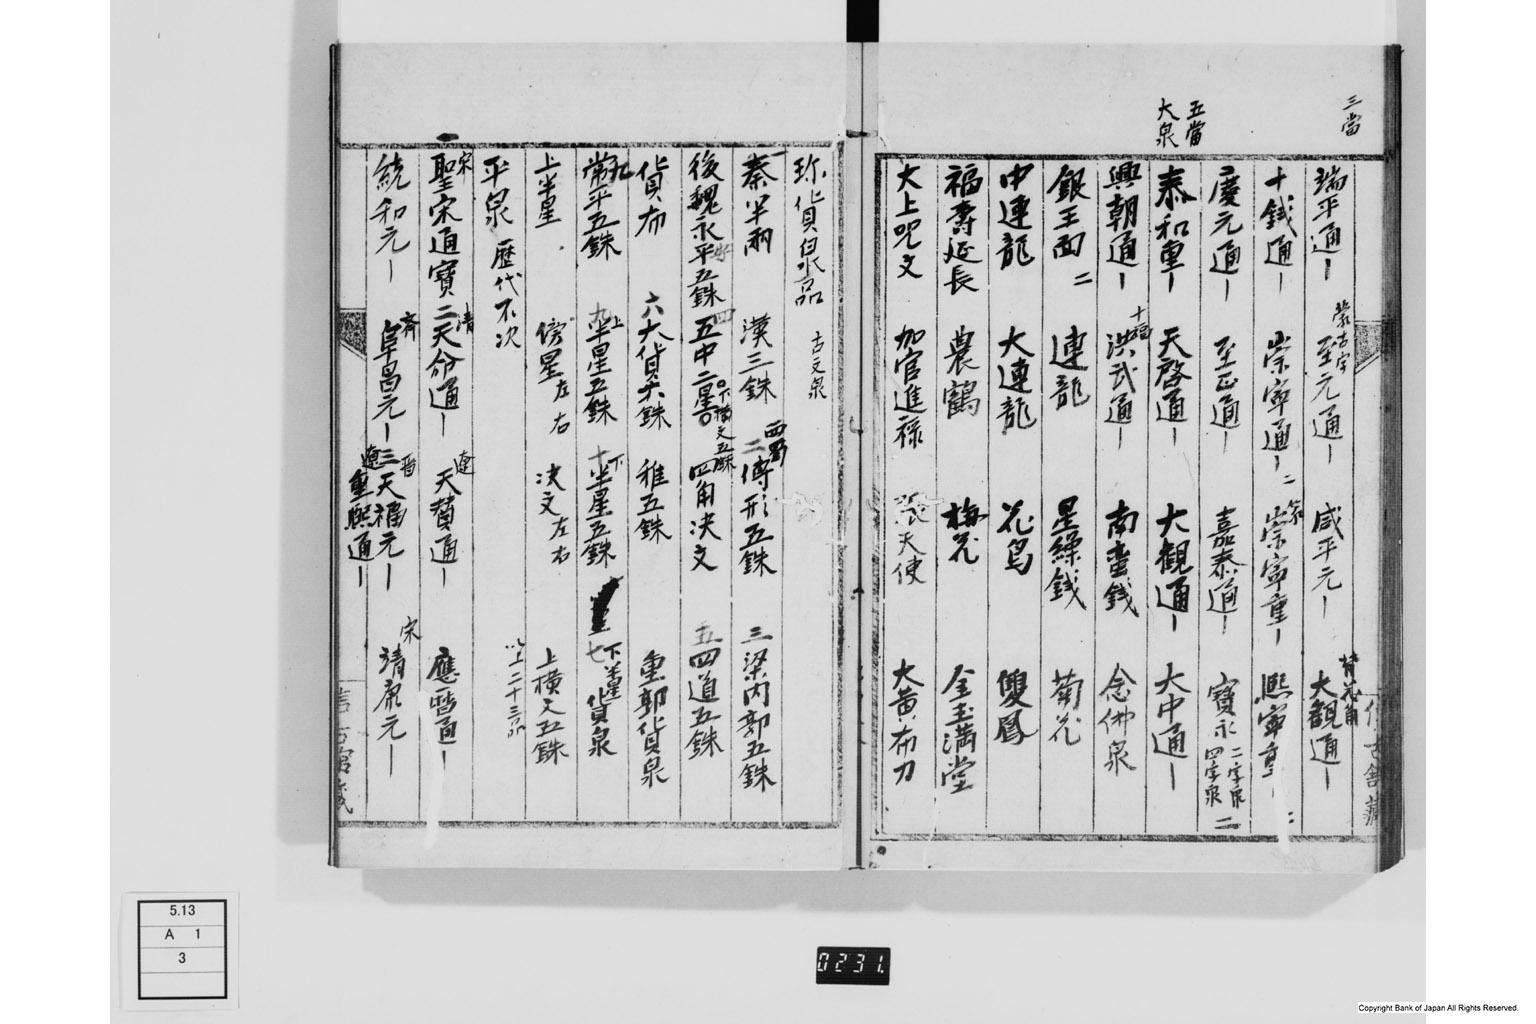 三當
五當
大泉
端平通ー 蒙古字 至元通ー 咸平元ー 背花角 大觀通ー
十錢通ー 崇寧通ー 二 崇寧重ー 熈寧重ー 二
慶元通ー 至正通ー 嘉泰通ー 寶永 二字泉 四字泉 二
泰和重ー 天啓通ー 大觀通ー 大中通ー
興朝通ー 十福 洪武通ー 南蛮錢 念佛泉
銀王面 二 連龍 星繰錢 菊花
中連龍 大連龍 花鳥 雙鳳
福壽延長 農鶴 梅花 金玉満堂
大上呪文 加官進禄 張天使 大黄布刀
珎貨泉品 古文泉
秦半兩 漢三銖 西蜀 二傳形五銖 三梁内郭五銖
後魏永平五銖 四 五中二星 下横文五銖 四角决文 五四道五銖
貨布 六大貨六銖 稚五銖 重郭貨泉
九 常平五銖 九上半星五銖 十下半星五銖 七下半星貨泉
上半星 傍星 左右 决文 左右 上横文五銖
平泉 歴代不次 以上二十三品
宋 聖宋通寶 二 清 天命通ー 遼 天賛通ー 應暦通ー
統和元ー 齊 阜昌元ー 三 晋 天福元ー 遼 重熈通ー 宋 靖康元ー
5.13
A 1
3
0231.
Copyright Bank of Japan All Rights Reserved.